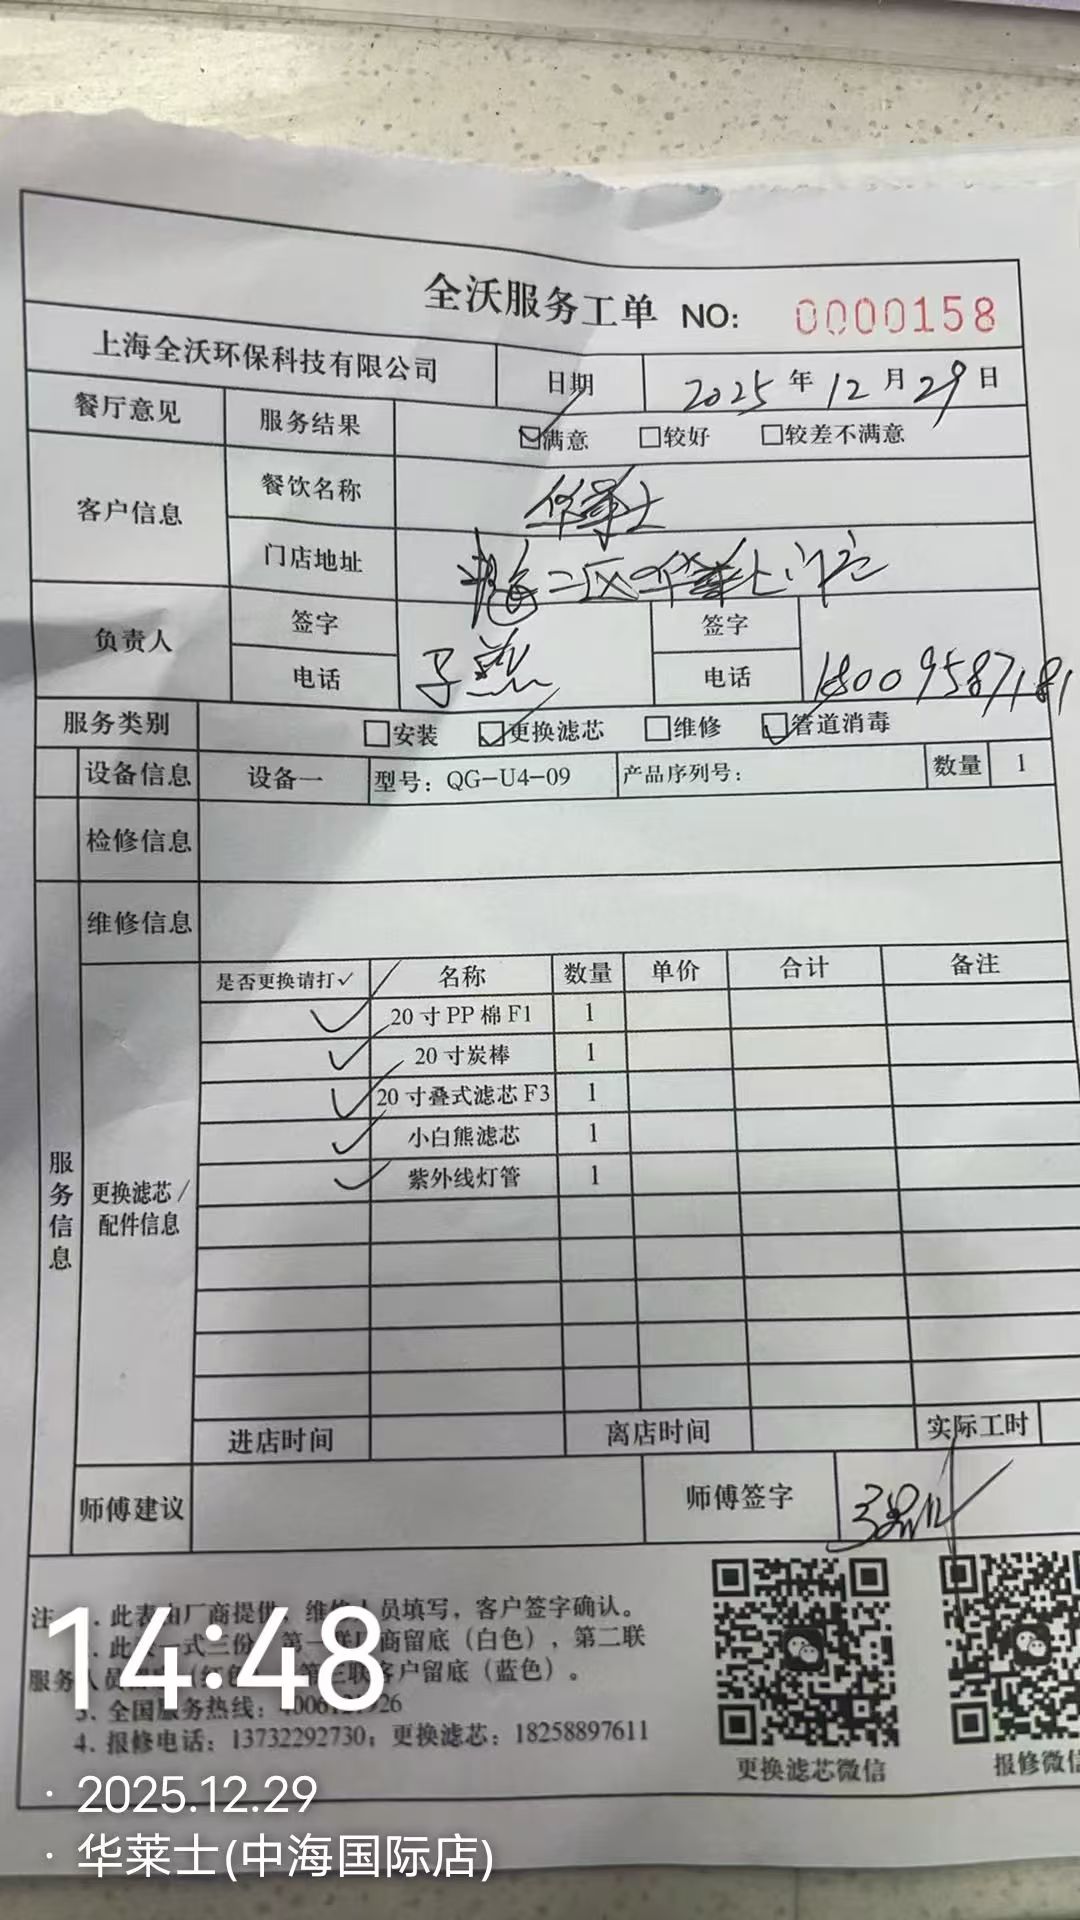 全沃服务工单 NO: 0000158
上海全沃环保科技有限公司 日期 2025 年 12 月 29 日
餐厅意见 服务结果 ☑满意 □较好 □较差不满意
客户信息 餐饮名称 华莱士
门店地址 二区华莱士门店
负责人 签字 签字
电话 电话 18009587181
服务类别 □安装 ☑更换滤芯 □维修 ☑管道消毒
设备信息 设备一 型号: QG-U4-09 产品序列号: 数量 1
检修信息
维修信息
服务信息
更换滤芯/配件信息
是否更换请打✓ 名称 数量 单价 合计 备注
✓ 20寸PP棉F1 1
✓ 20寸炭棒 1
✓ 20寸叠式滤芯F3 1
✓ 小白熊滤芯 1
✓ 紫外线灯管 1
进店时间 离店时间 实际工时
师傅建议 师傅签字
注 . 此表由厂商提供, 维 人员填写, 客户签字确认。
. 此 一式三份 第一联厂商留底（白色）, 第二联
服务人员 第三联客户留底（蓝色）。
3. 全国服务热线:
4. 报修电话: 13732292730; 更换滤芯: 18258897611
更换滤芯微信
报修微信
14:48
· 2025.12.29
· 华莱士(中海国际店)